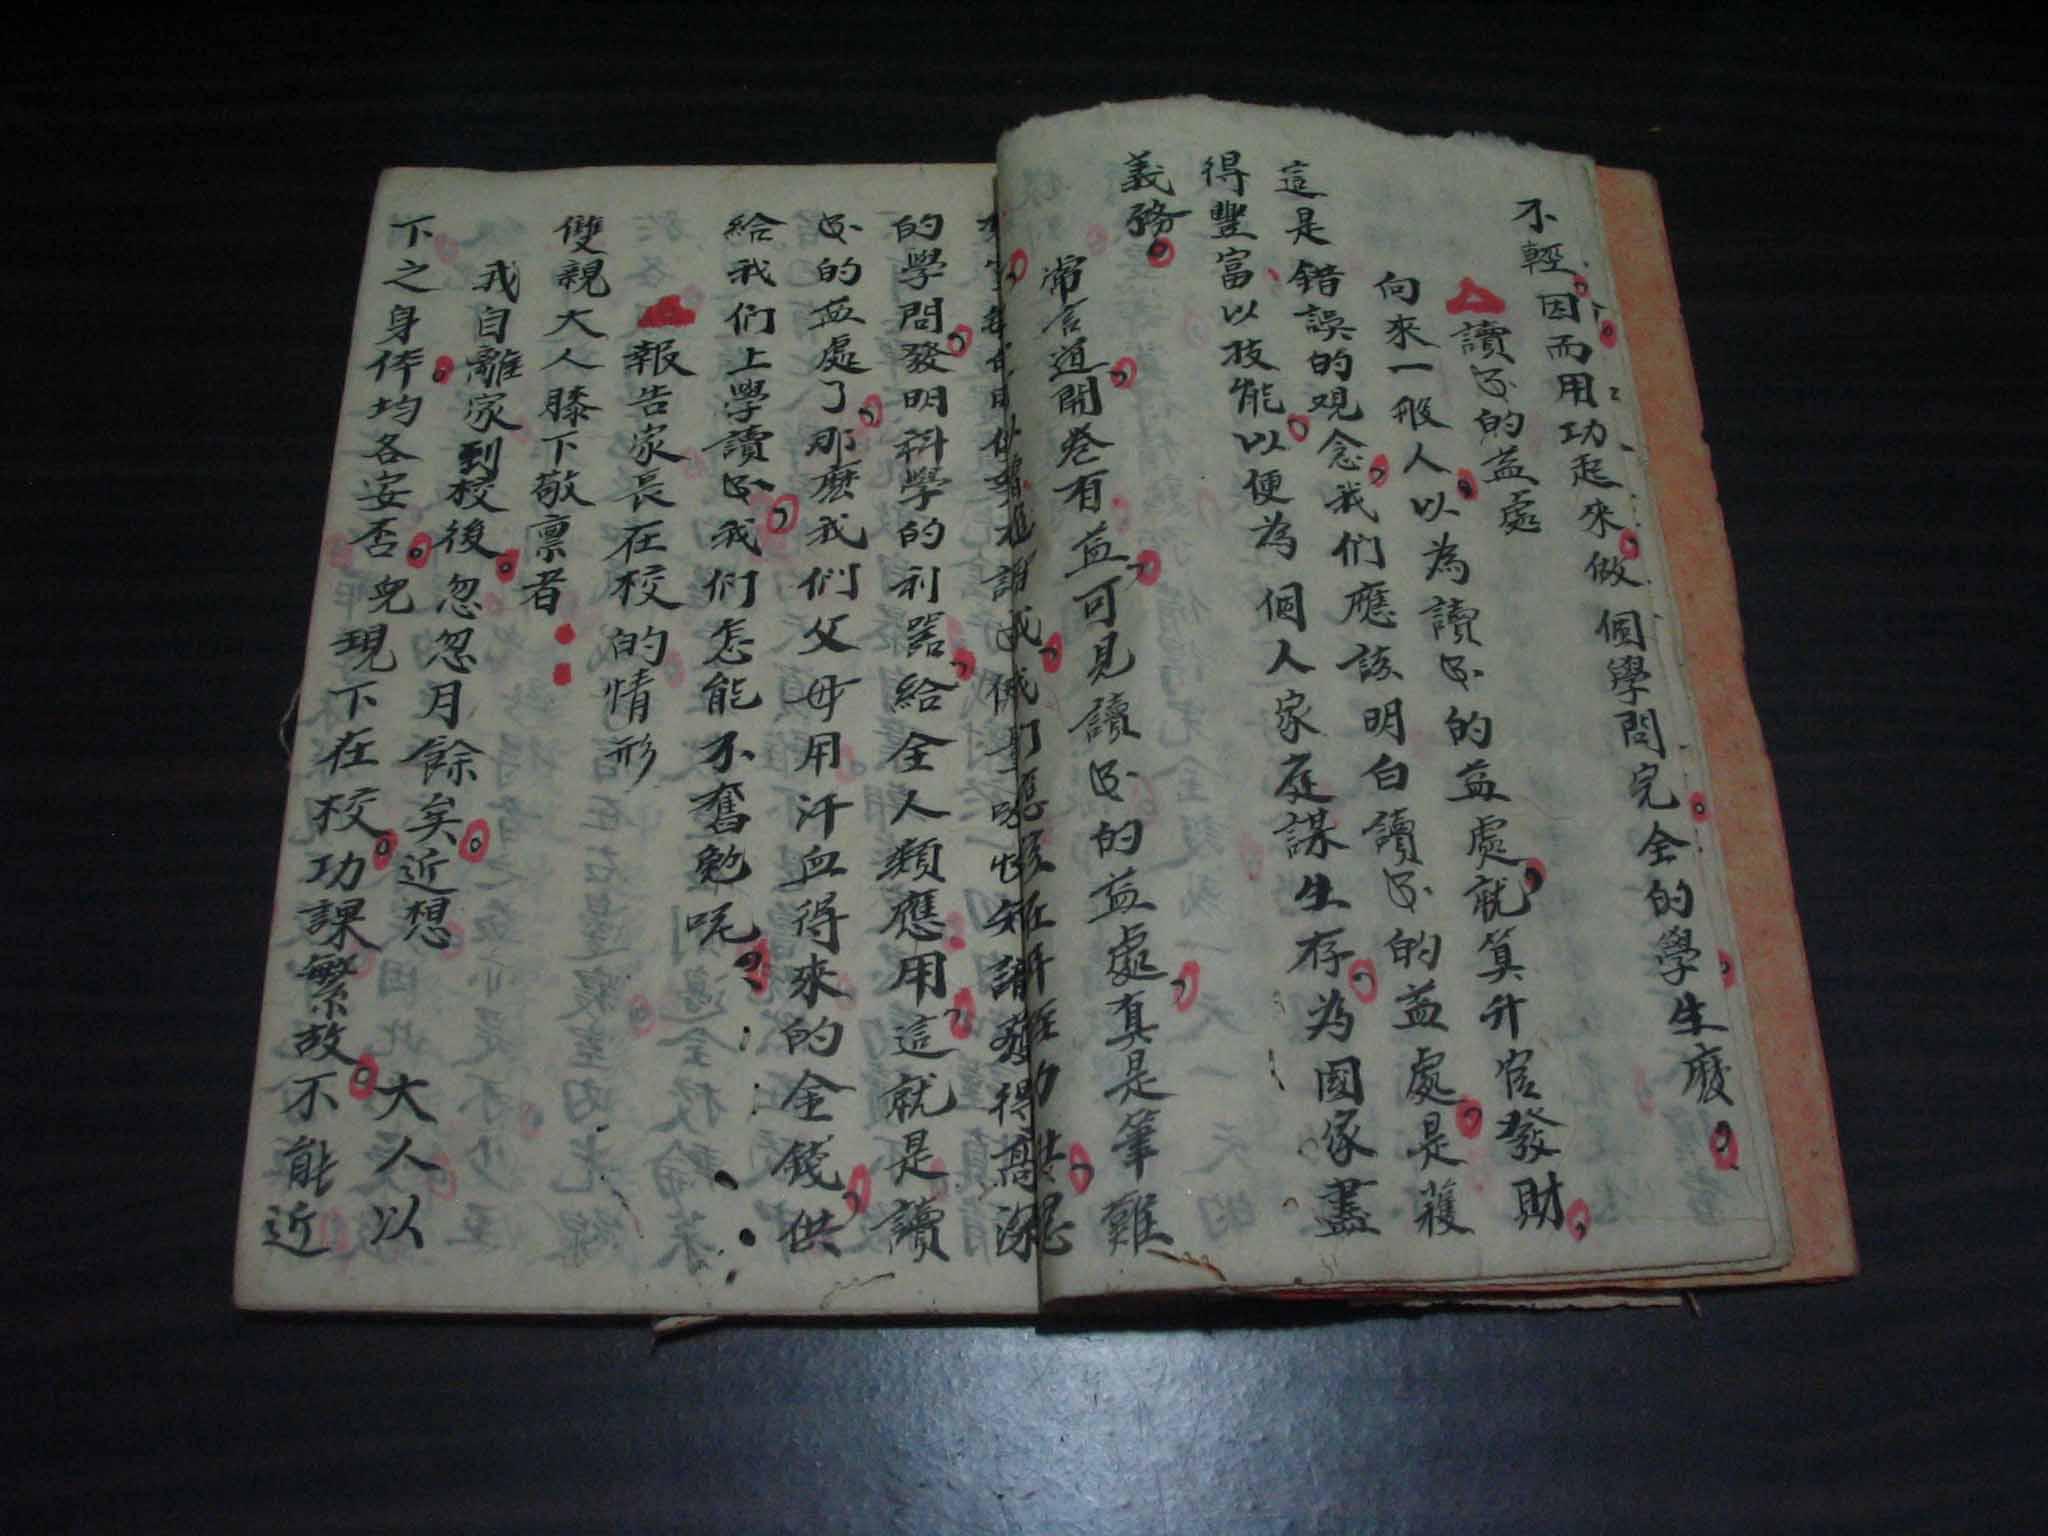 不輕因而用功起來做個學問完全的學生麼，
讀书的益處
向來一般人，以為讀书的益處，就算升官發財，
這是錯誤的观念，我们應該明白讀书的益處，是獲
得豐富以技能。以便為個人家庭謀生存。為國家盡
義務。
常言道，開卷有益，可見讀书的益處，真是筆難
的學問，發明科學的利器，給全人類應用，這就是讀
书的益處了，那麼我们父母用汗血得來的金錢，供
給我们上學讀书，我们怎能不奮勉呢，
報告家長在校的情形
雙親大人膝下敬禀者：
我自離家到校後。忽忽月餘矣。近想 大人以
下之身体。均各安否。兒現下在校。功課繁故。不能近